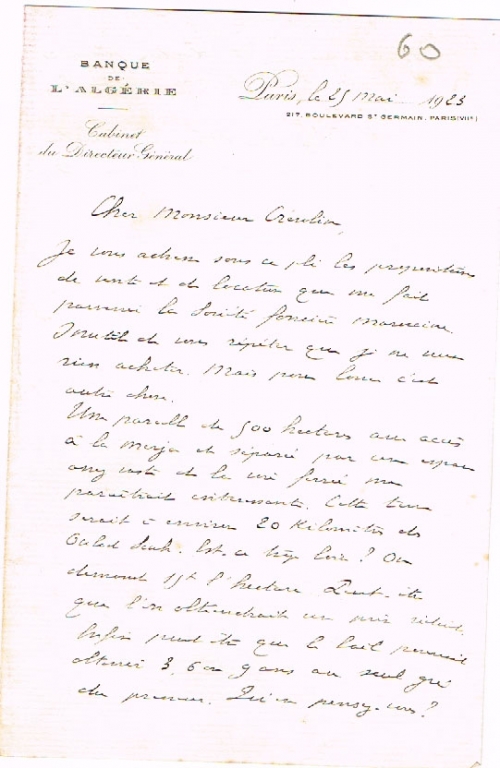 60
BANQUE
DE
L'ALGÉRIE
Cabinet
du Directeur Général
Paris, le 25 Mai 1923
217, BOULEVARD ST GERMAIN, PARIS (VIIe)
Cher Monsieur
Je vous adresse sous ce pli les propositions
de vente et de location que me fait
parvenir la Société foncière marocaine.
Inutile de vous répéter que je ne veux
rien acheter. Mais pour louer c'est
autre chose.
Une parcelle de 500 hectares avec accès
à la merja et séparée par un espace
assez vaste de la voie ferrée me
paraîtrait intéressante. Cette terre
serait à environ 20 Kilomètres de
Est-ce trop loin? On
demande 15f l'hectare. Peut-être
que l'on obtiendrait un prix réduit.
Enfin peut-être que le bail pourrait
obtenir 3, 6 ou 9 ans au seul gré
du preneur. Qu'en pensez-vous?